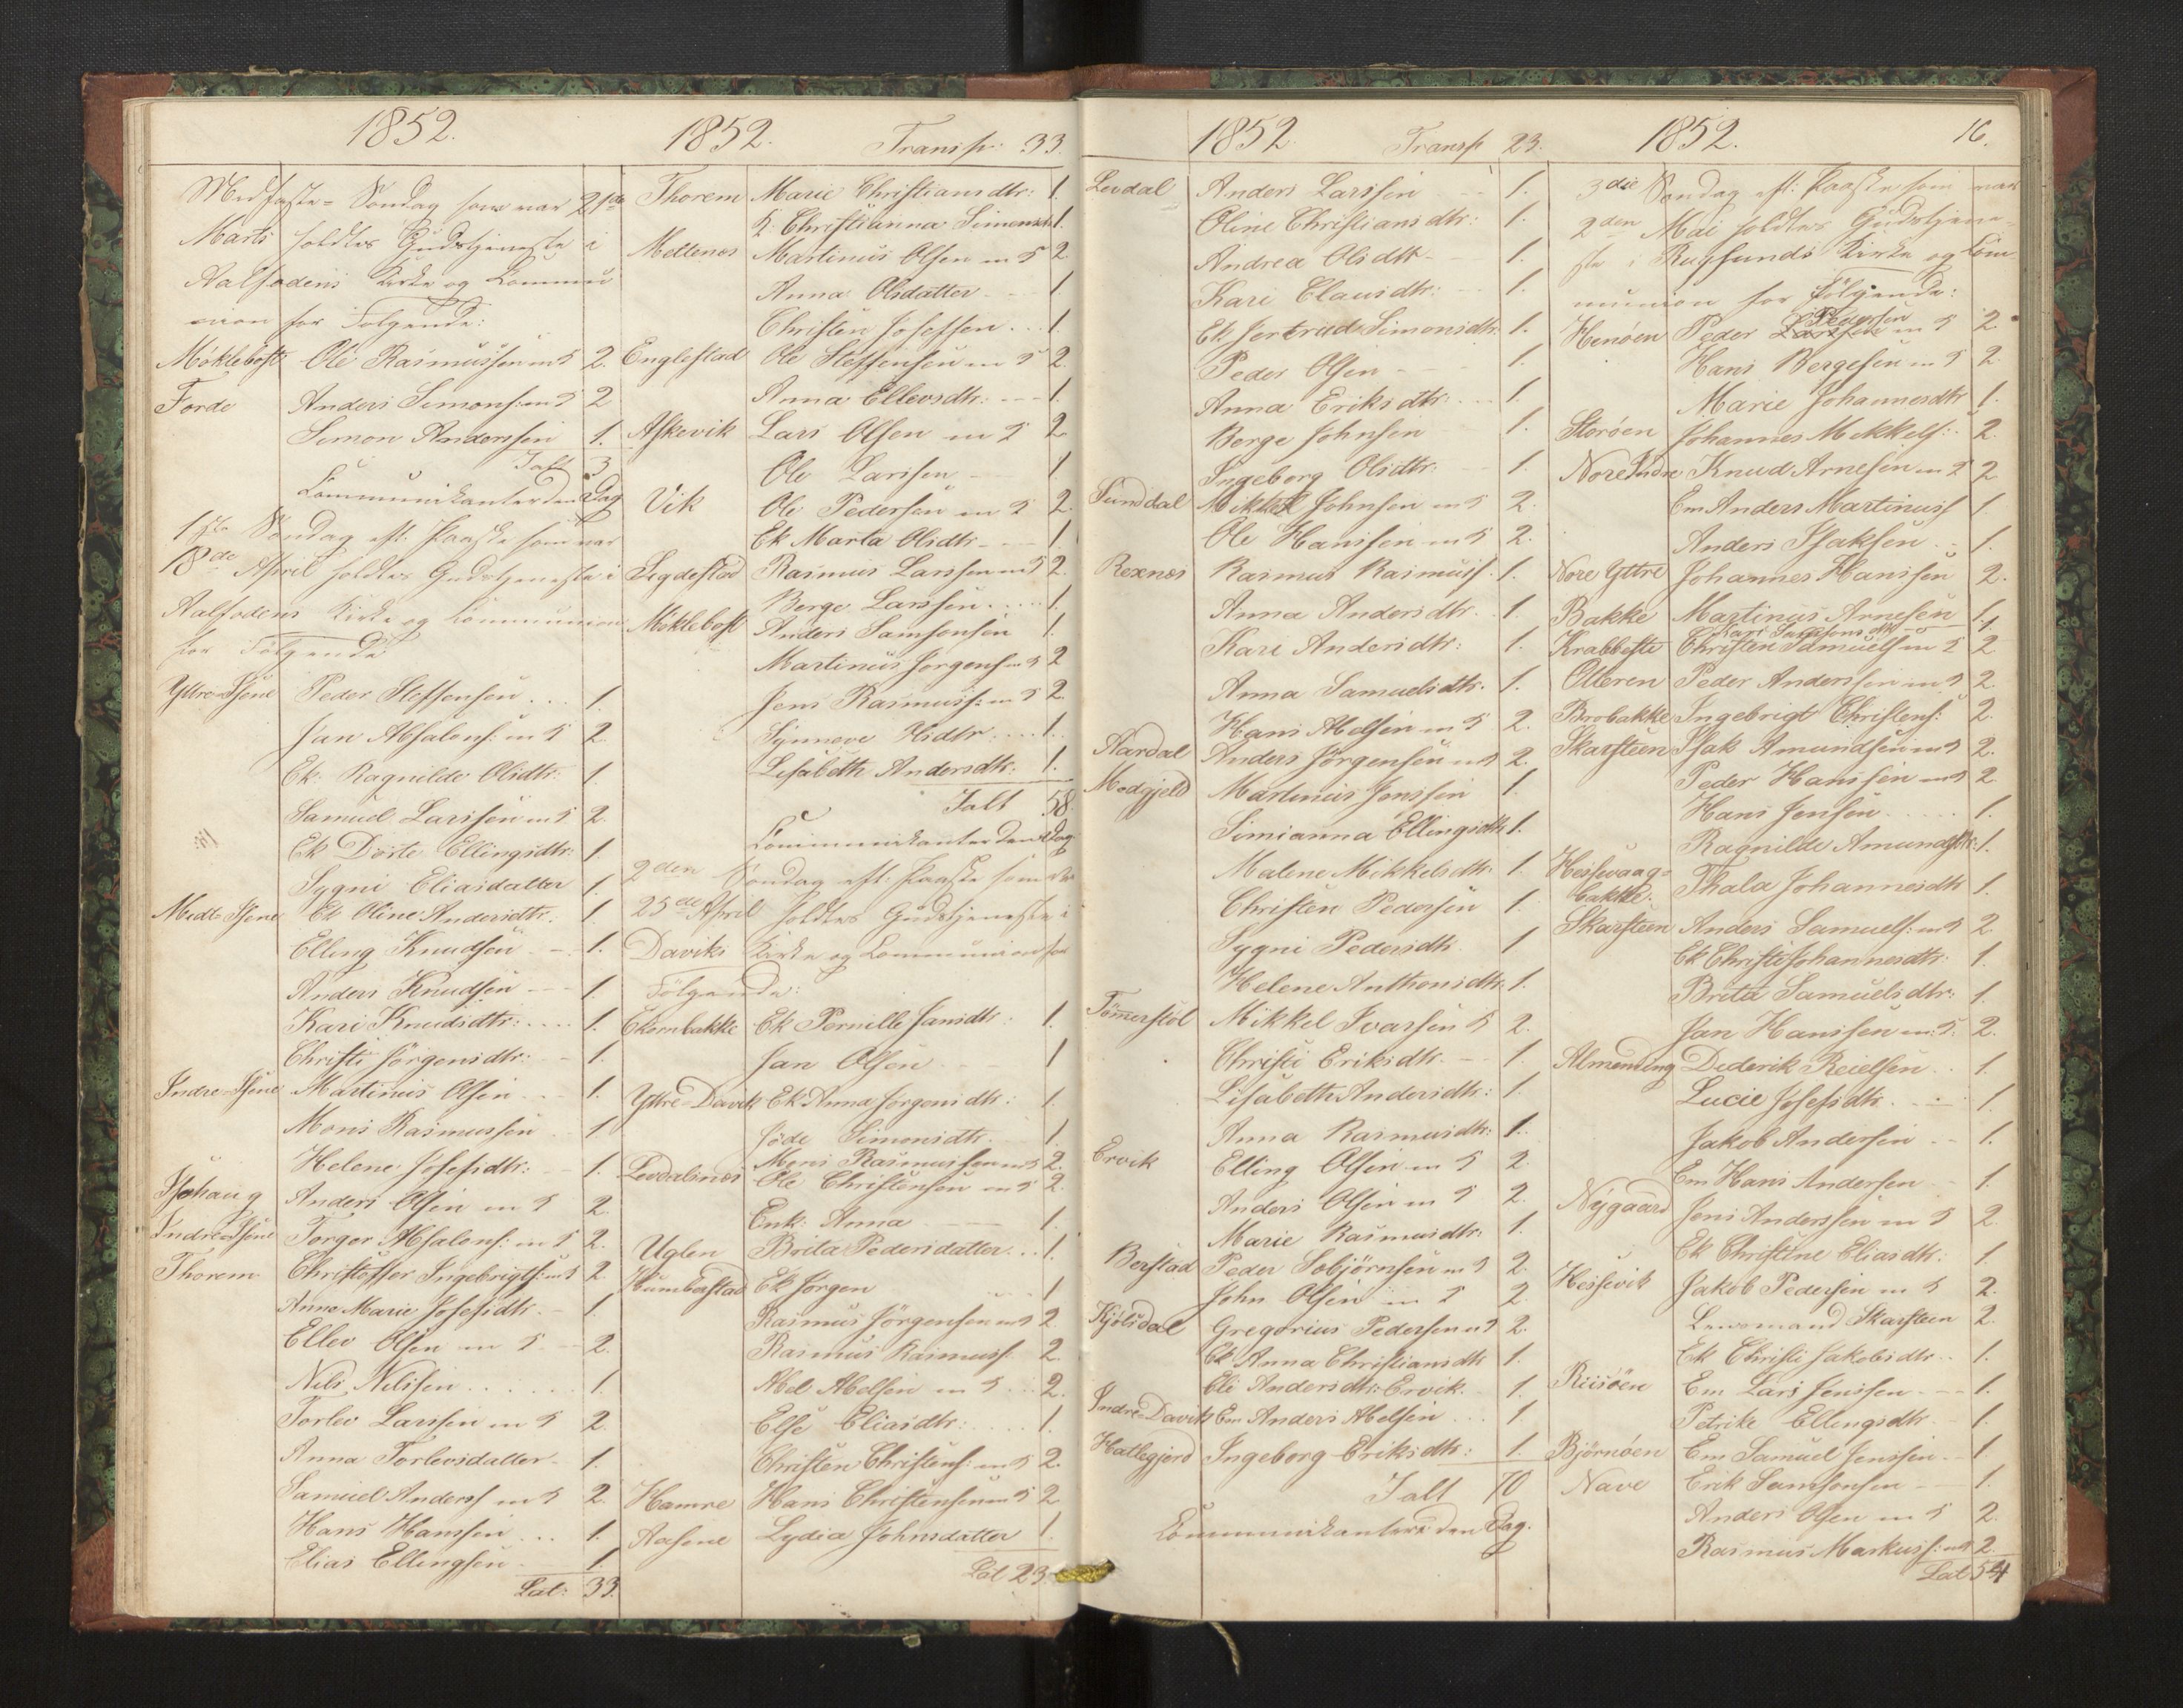 1852.
Midfaste-Søndag som var 21de
Marts holdtes Gudstjeneste i
Aalfodens Kirke og Kommu
nion for Følgende:
Möklebost Ole Rasmussen m 5 2.
Förde Anders Simons: m 5 2
Simon Anderssen 1.
Ialt 3
Communikanter den Dag
1ste Søndag eft. Paaske som var
18de April holdtes Gudstjeneste i
Aalfodens Kirke og Communion
for Følgende
Yttre Hjene Peder Steffensen 1.
Jan Absalons: m 5 2.
Ek: Ragnilde Olsdtr: 1.
Samuel Larssen m 5 2.
Ek Dorte Ellingsdtr: 1.
Sygni Eliasdatter 1.
Midt-Hjene Ek Oline Andersdtr. 1.
Elling Knudsen 1.
Anders Knudsen 1.
Kari Knudsdtr: 1.
Christi Jörgensdtr: 1.
Indre-Hjene Martinus Olsen 1.
Mons Rasmussen 1
Helene Josefsdtr: 1.
Anders Olsen m 5 2.
Indre Hjene Torger Absalons: m 5 2.
Thorem Christoffer Ingebrigts: m 5 2.
Anne Marie Josefsdtr. 1.
Ellev Olsen m 5 2.
Nils Nilssen 1.
Torlev Larssen m 5 2.
Anna Torlevsdatter 1.
Samuel Anderss m 5 2.
Hans Hanssen 1.
Elias Ellingsen 1
Lat: 33.
1852. Transp: 33.
Thorem Marie Christiansdtr: 1.
Christianna Simensdt 1.
Mettenes Martinus Olsen m 5 2.
Anna Olsdatter 1.
Christen Josefsen 1.
Englestad Ole Steffensen m 5 2.
Anna Ellevsdtr: 1.
Askevik Lars Olsen m 5 2
Ole Larssen 1
Vik Ole Pedersen m 5 2.
Ek Marta Olsdtr 1.
Sigdestad Rasmus Larssen m 5 2.
Berge Larssen 1.
Möklebost Anders Samsonsen 1.
Martinus Jorgens m 5 2
Jens Rasmuss: m 5 2.
Synneve 1.
Lisabeth Andersdtr: 1.
Ialt 58.
Communikanter den Dag
2den Søndag eft. Paaske som var
25de April holdtes Gudstjeneste i
Daviks Kirke og Communion for
Følgende:
Ekornbakke Ek Pernille Jansdtr: 1.
Jan Olsen 1
Yttre-Davik Ek Anna Jorgensdtr: 1.
Simonsdtr. 1.
Mons Rasmussen m 5 2.
Levdalsnes Ole Christensen m 5 2.
Enk: Anna 1.
Uglen Brita Pedersdatter 1.
Humborstad Ek Jörgen 1
Rasmus Jörgensen m 5 2
Rasmus Rasmuss. 2
Abel Abelsen m 5 2.
Else Eliasdtr: 1.
Christen Christens: m 5 2.
Hamre Hans Christensen m 5 2
Aasene Lydia Johnsdatter 1.
Lat 23.
1852. Transp 23.
Levdal Anders Larssen 1.
Oline Christiansdtr: 1.
Andrea Olsdtr. 1.
Kari Clausdtr: 1.
Ek Jertrud Simonsdtr. 1.
Peder Olsen 1.
Anna Eriksdtr: 1.
Berge Johnsen 1.
Ingeborg Olsdtr: 1.
Sunddal Mikkel Johnsen m 5 2.
Ole Hanssen m 5 2.
Rexnes Rasmus Rasmuss. 1.
Anna Andersdtr. 1.
Kari Andersdtr: 1.
Anna Samuelsdtr. 1.
Hans Abelsen m 5 2.
Aardal Anders Jörgensen m 5 2.
Modgjeld Martinus Jenssen 1.
Simianna Ellingsdtr 1.
Malene Mikkelsdtr. 1.
Christen Pedersen 1.
Sygni Pedersdtr. 1
Helene Anthonsdtr. 1.
Tömerstöl Mikkel Ivarsen 5 2.
Christi Eriksdtr. 1.
Lisabeth Andersdtr: 1.
Anna Rasmusdtr: 1.
Ervik Elling Olsen m 5 2.
Anders Olsen m 5 2.
Marie Rasmusdtr. 1.
Berstad Peder Sebjörnsen m 5 2.
John Olsen m 5 2
Kjölsdal Gregorius Pedersen m 5 2.
Ek Anna Christiansdtr. 1.
Eli Andersdtr: Ervik. 1.
Indre-Davik Em Anders Abelsen 1
Hatlegjerd Ingeborg Eriksdtr: 1.
Ialt 70
Communikanter den Dag.
1852. 16.
3die Søndag eft. Paaske som var
2den Mai holdtes Gudstjene-
ste i Rugsunds Kirke og Com-
munion for Følgende:
Pedersen
Henöen Peder Larssen m 5 2.
Hans Bergesen m 5 2
Marie Johannesdtr 1.
Storöen Johannes Mikkels: 2.
Nore Indre Knud Arnesen m 5 2
Em Anders Martinuss 1
Anders Isaksen 1.
Nore Yttre Johannes Hanssen 2.
Bakke Martinus Arnesen 1.
Kari Samsonsdtr 1.
Krabbeste Christen Samuelsen 5 2
Otteren Peder Anderssen m 5 2.
Brobakke Ingebrigt Christens: 2.
Skarsteen Isak Amundsen m 5 2.
Peder Hanssen m 5 2
Hans Jensen 1.
Ragnilde Amundsdtr: 1.
Hessevaag-
bakke. Thala Johannesdtr 1.
Skarsteen Anders Samuels: m 5 2
Ek Christi Johannesdtr: 1.
Brita Samuelsdtr: 1.
Jan Hanssen m: 5. 2.
Almending Dederik Reielsen 1.
Lucie Josefsdtr. 1.
Jakob Anderssen 1.
Em Hans Andersen 1.
Nygaard Jens Anderssen m 5 2
Ek Christine Eliasdtr. 1.
Hessevik Jakob Pedersen m 5 2.
Lensmand Skarsteen 2.
Ek Christi Jakobsdtr. 1.
Risöen Em Lars Jenssen 1.
Petrike Ellingsdtr. 1.
Björnöen Em Samuel Jenssen 1
Nave Erik Samsonsen 1.
Anders Olsen m 5 2.
Rasmus Markuss: m 5 2.
Lat 54